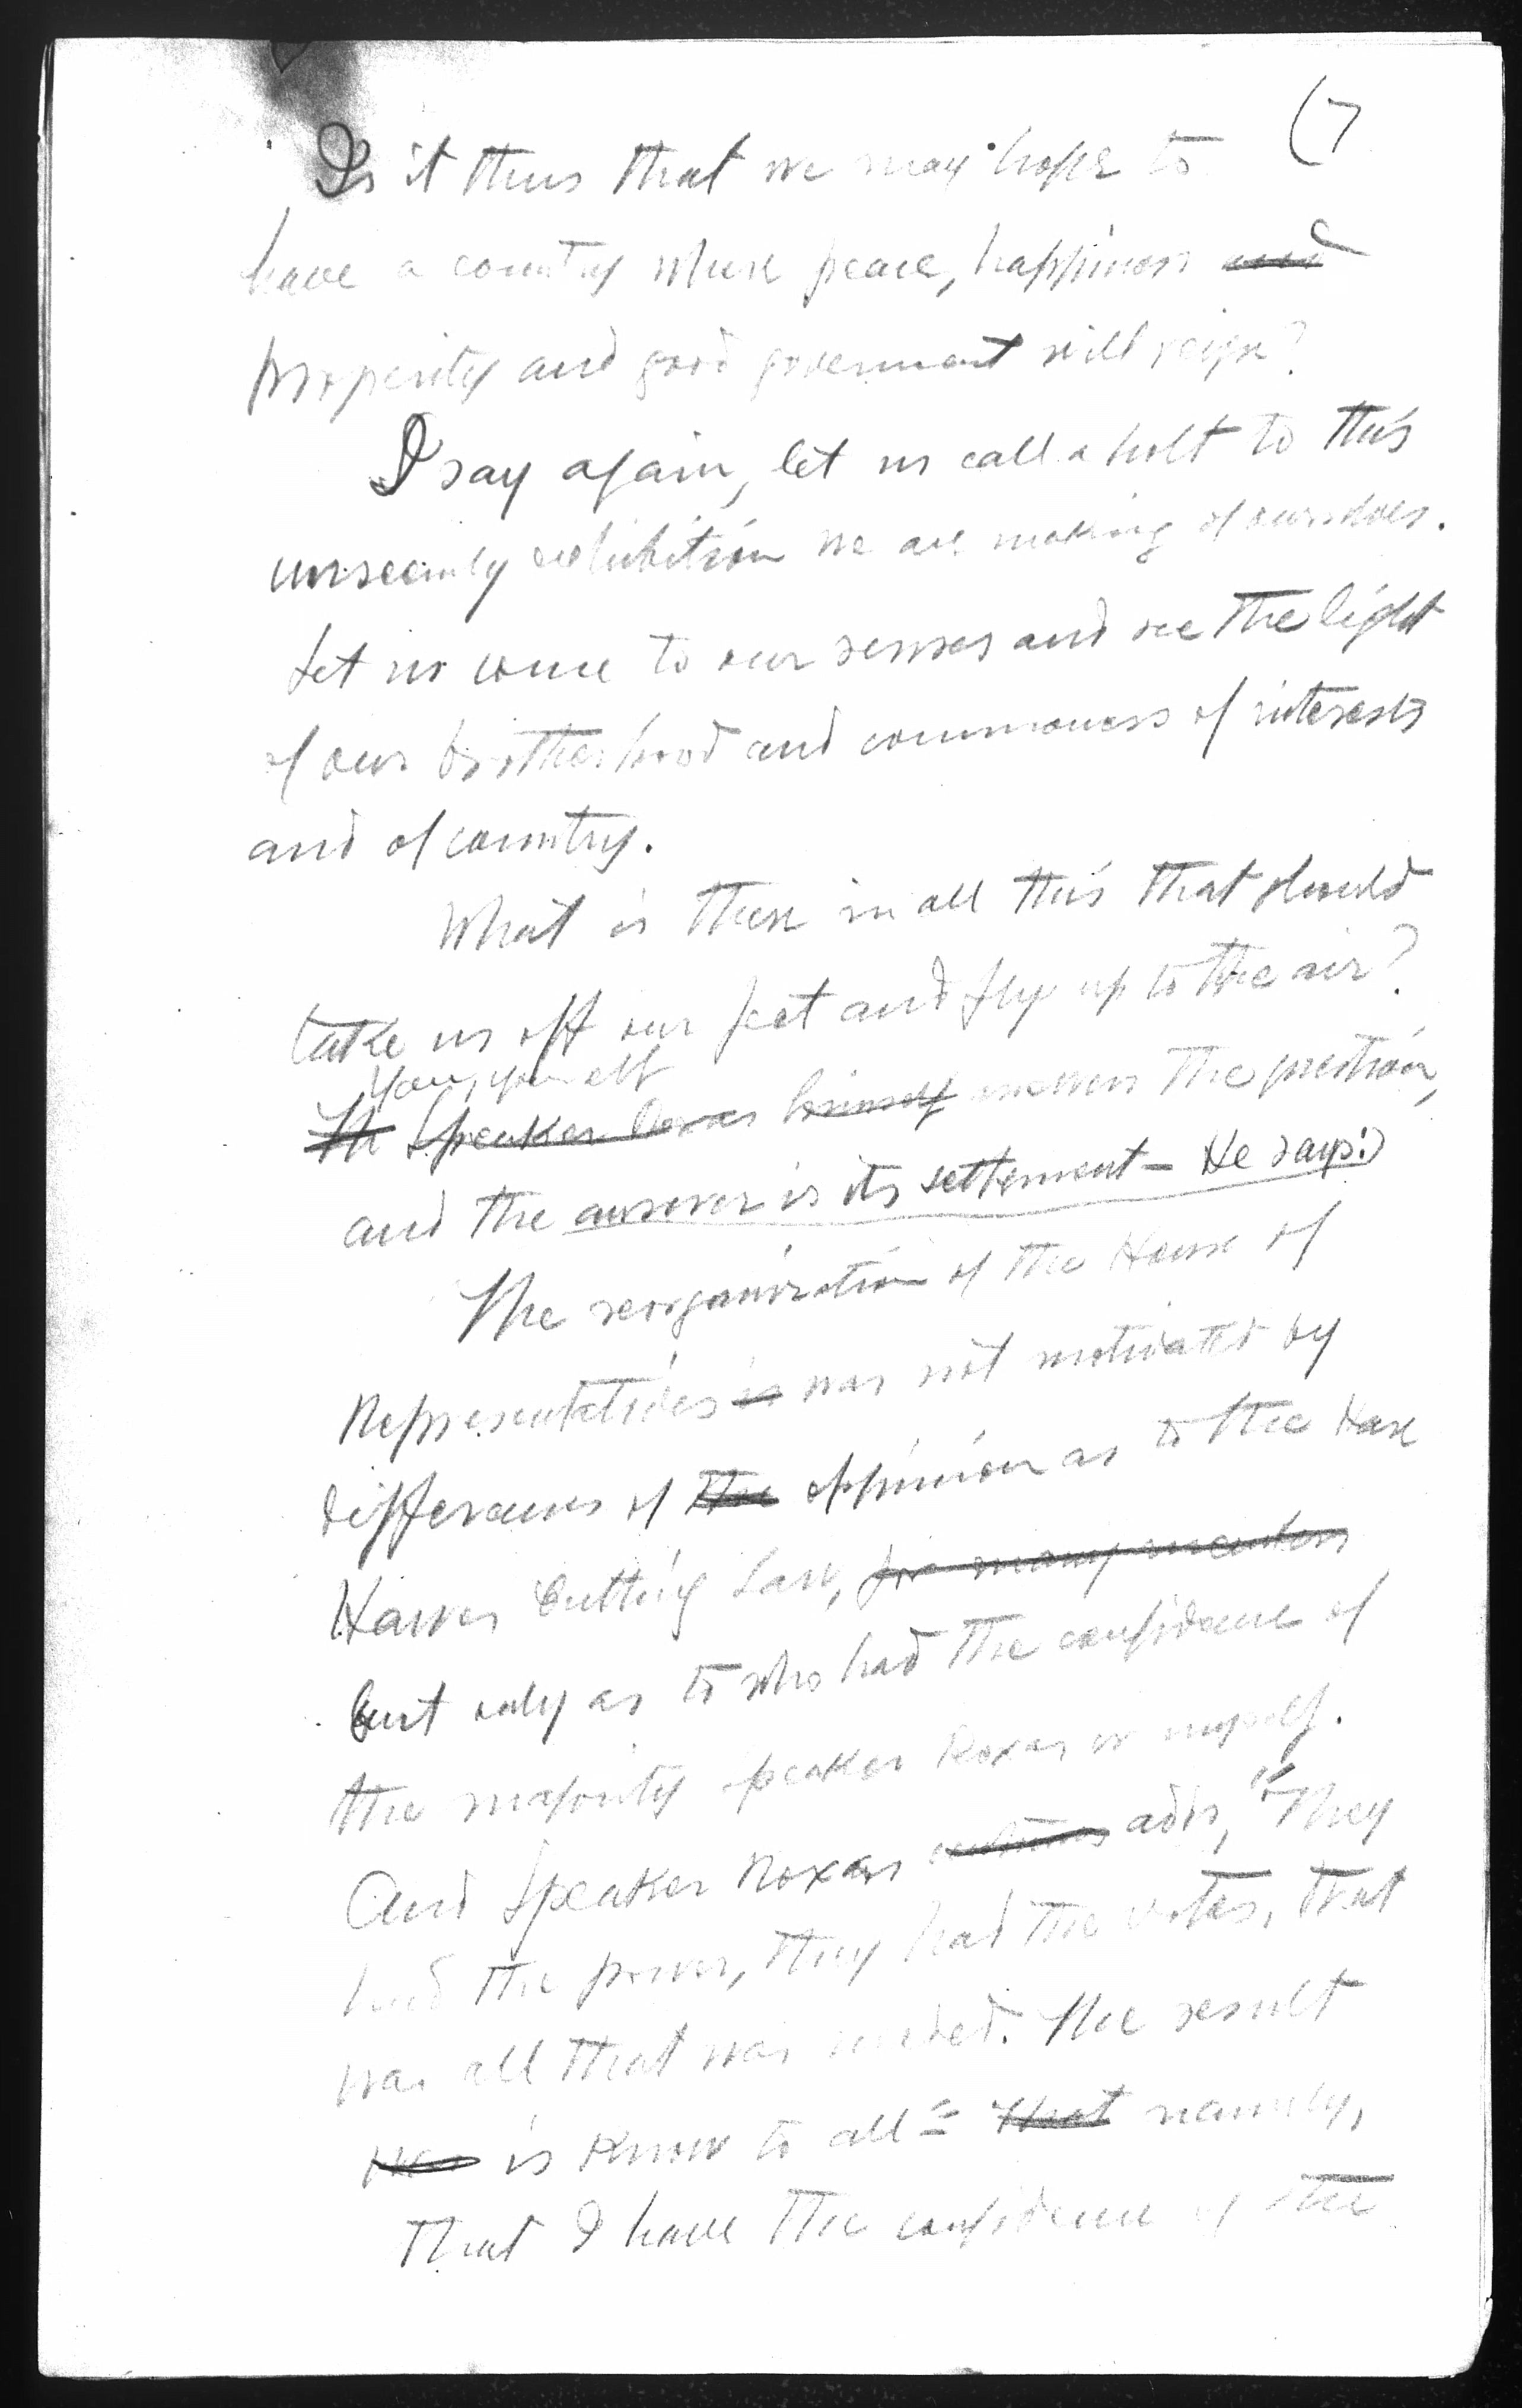 (7
Is it thus that we may hope to
have a country where peace, happiness and
prosperity and good government will reign?
I say again, let us call a halt to this
unseemly exhibition we are making of ourselves.
Let us come to our senses and see the light
of our brotherhood and commoness of interests
and of country.
What is there in all this that should
take us off our feet and fly up to the air?
You, yourself
The Speaker Roxas himself answers the question,
and the answer is its settlement - He says:
The reorganization of the House of
Representatives is was not motivated by
differences of the oppinion as to the Hare
Hawes Cutting Law, for many members
but only as to who had the confidence of
the majority speaker Roxas or myself.
And Speaker Roxas adds, "They
had the power, they had the votes, that
was all that was needed. The result
is know to all" that namely,
that I have the confidence of the